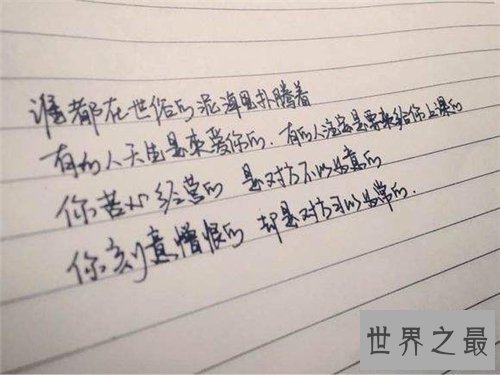 谁都在世俗的泥海里扑腾着
有的人天生是来爱你的.有的人注定是要来给你上课的
你苦心经营的 是对方不以为意的
你刻意憎恨的 却是对方习以为常的.
世界之最